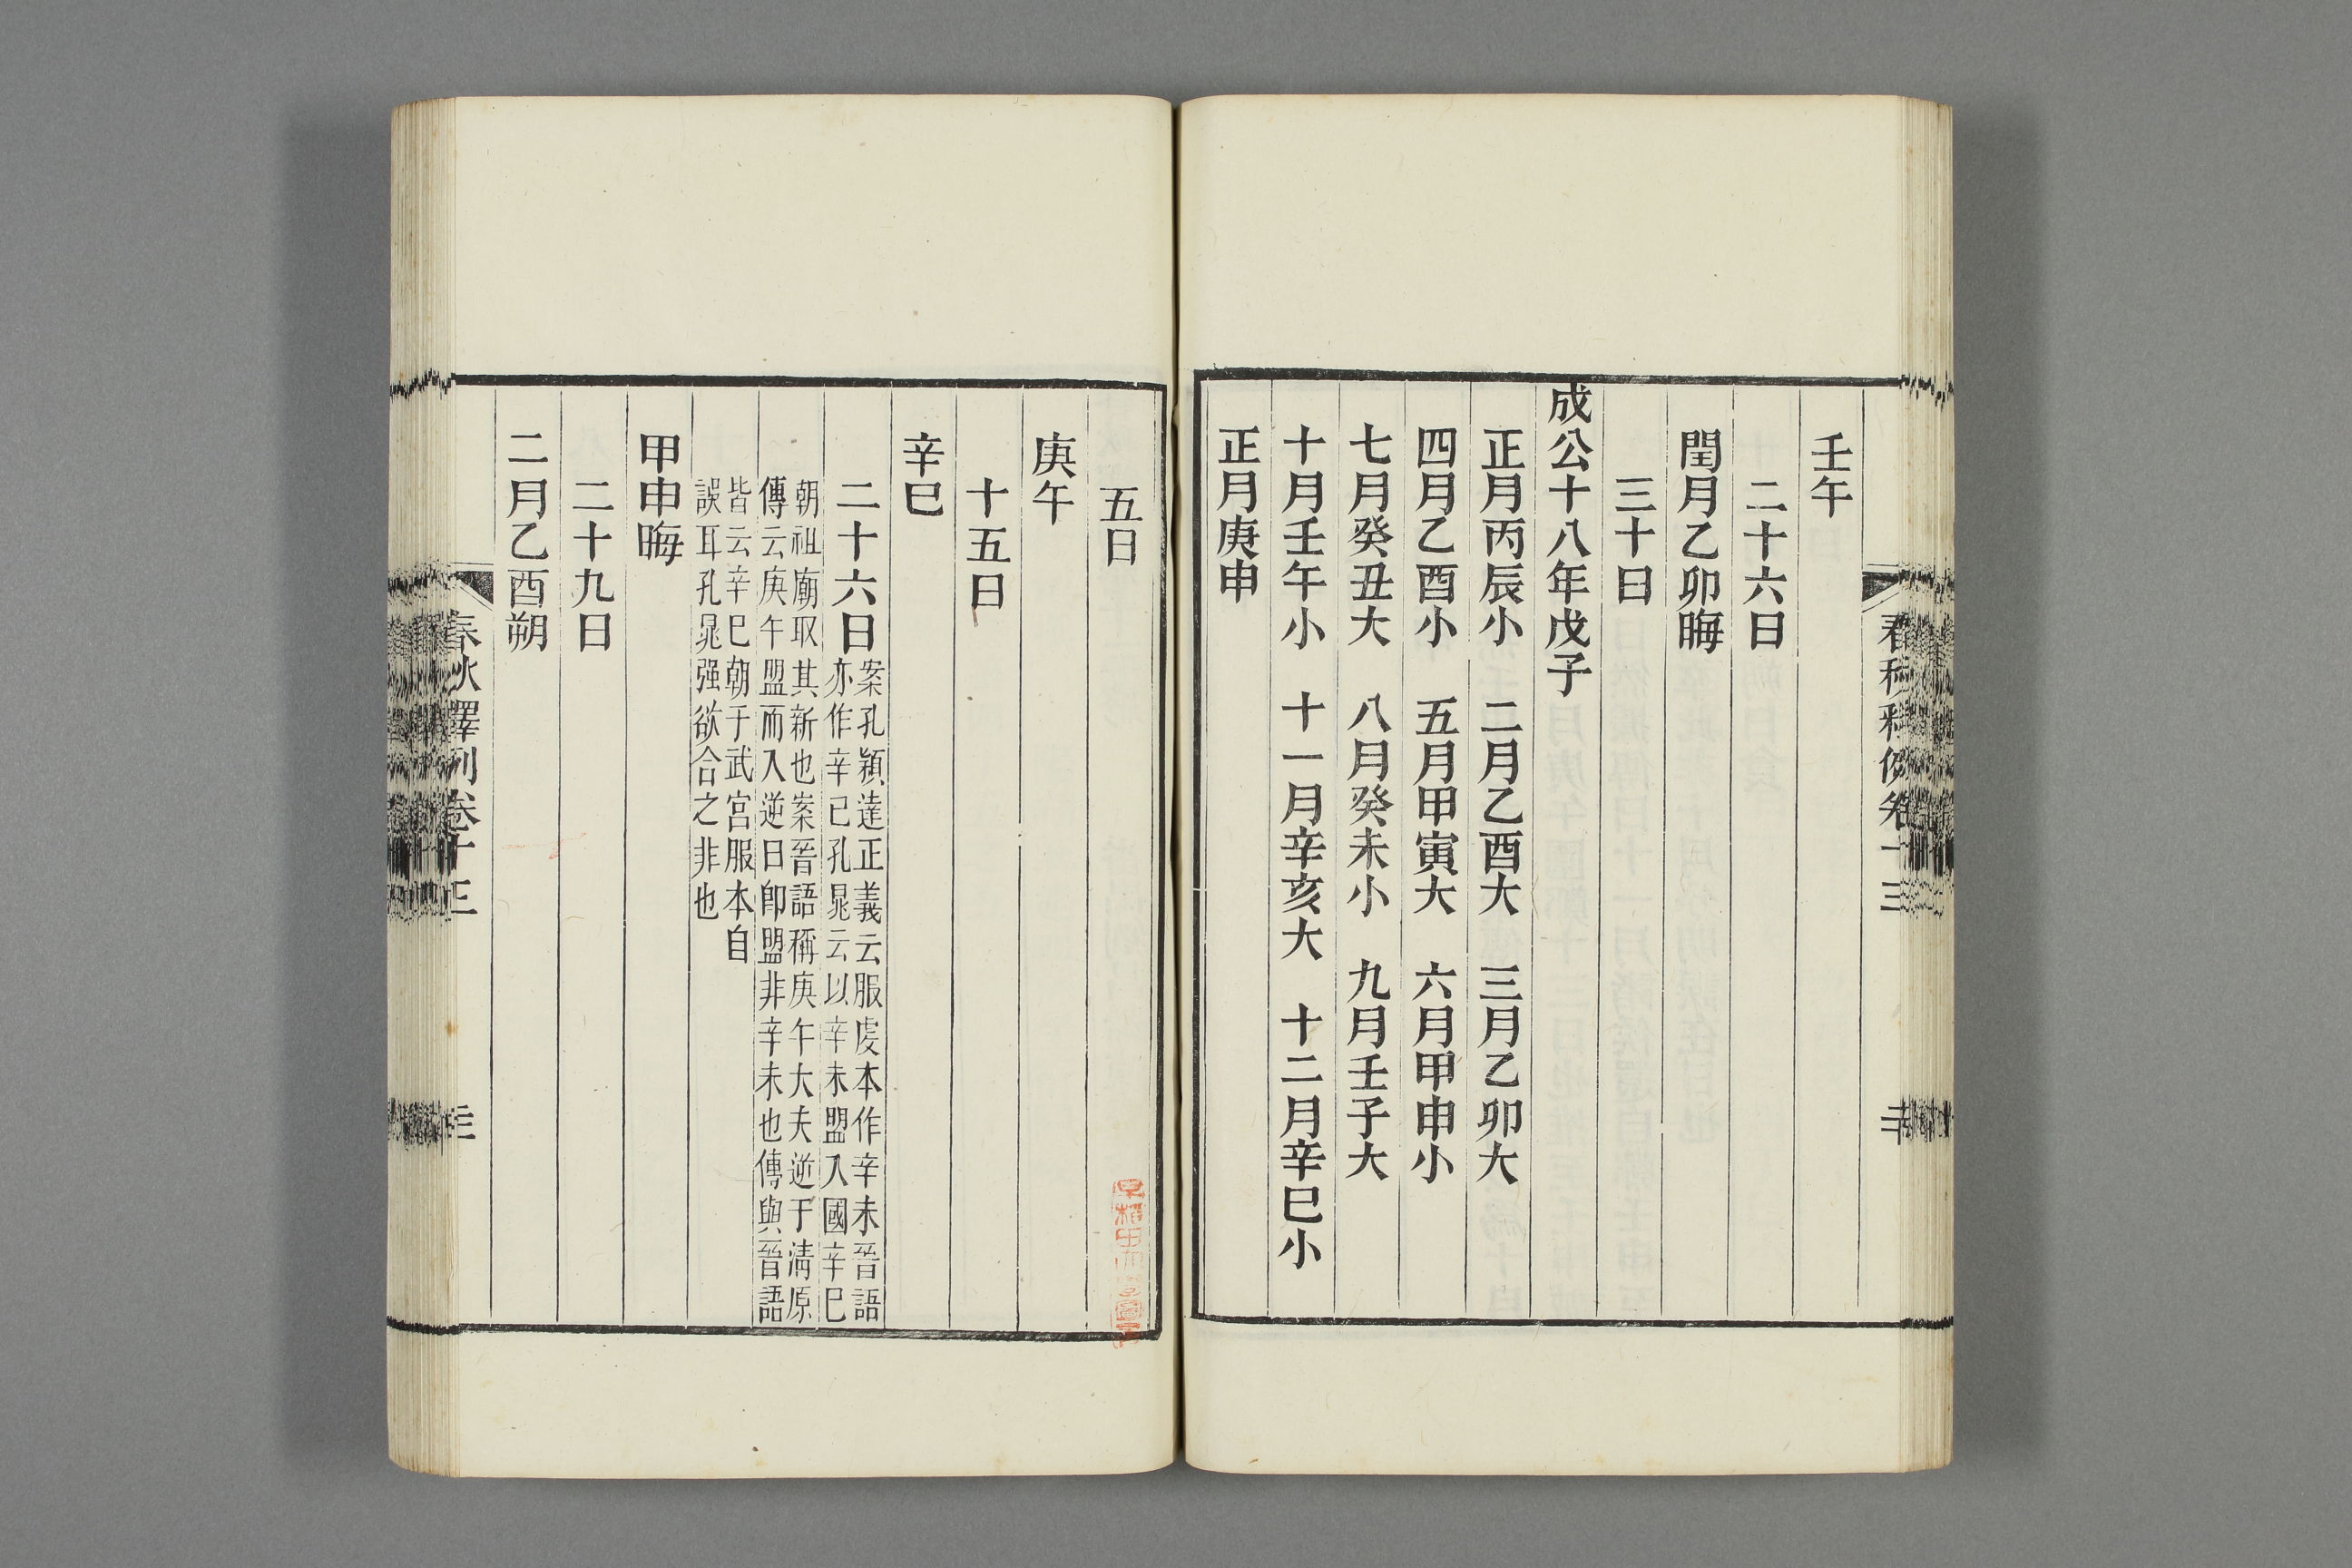 壬午
二十六日
閏月乙卯晦
三十日
成公十八年戊子
正月丙辰小　二月乙酉大　三月乙卯大
四月乙酉小　五月甲寅大　六月甲申小
七月癸丑大　八月癸未小　九月壬子大
十月壬午小　十一月辛亥大　十二月辛巳小
正月庚申
五日
庚午
十五日
辛巳
二十六日
案孔穎達正義云服虔本作辛未晉語
亦作辛巳孔晁云以辛未盟入國辛巳
朝祖廟取其新也案晉語稱庚午大夫逆于清原
傳云庚午盟而入逆日卽盟非辛未也傳與晉語
皆云辛巳朝于武宮服本自
誤耳孔晁强欲合之非也
甲申晦
二十九日
二月乙酉朔
春秋釋例卷十三